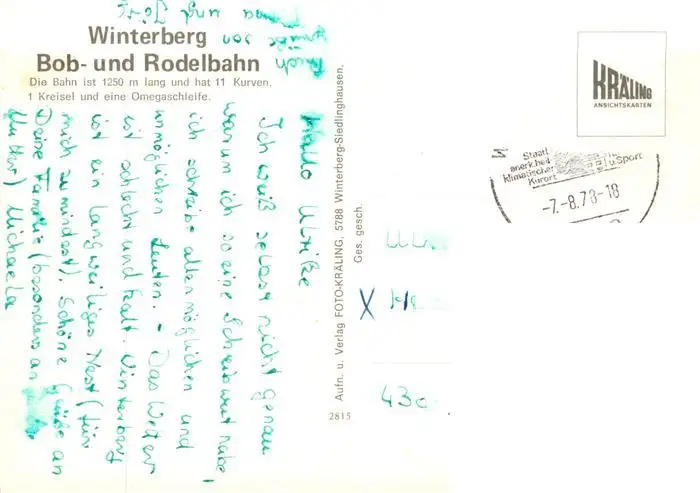 Winterberg
Bob- und Rodelbahn
Die Bahn ist 1250 m lang und hat 11 Kurven,
1 Kreisel und eine Omegaschleife.
Hallo Ulrike
Ich weiß selbst nicht genau
warum ich so eine Schreibwut habe,
ich schreibe allen möglichen und
unmöglichen Leuten. - Das Wetter
ist schlecht und kalt. Winterberg
ist ein langweiliges Nest (für
mich zumindest). Schöne Grüße an
Deine Familie (besonders an
Mutter) Michaela
von
und
Aufn. u. Verlag FOTO-KRÄLING, 5788 Winterberg-Siedlinghausen.
Ges. gesch.
2815
KRÄLING
ANSICHTSKARTEN
Staatl.
anerk. heil
klimatischer
Kurort
u. Sport
-7.-8.78-18
X
430